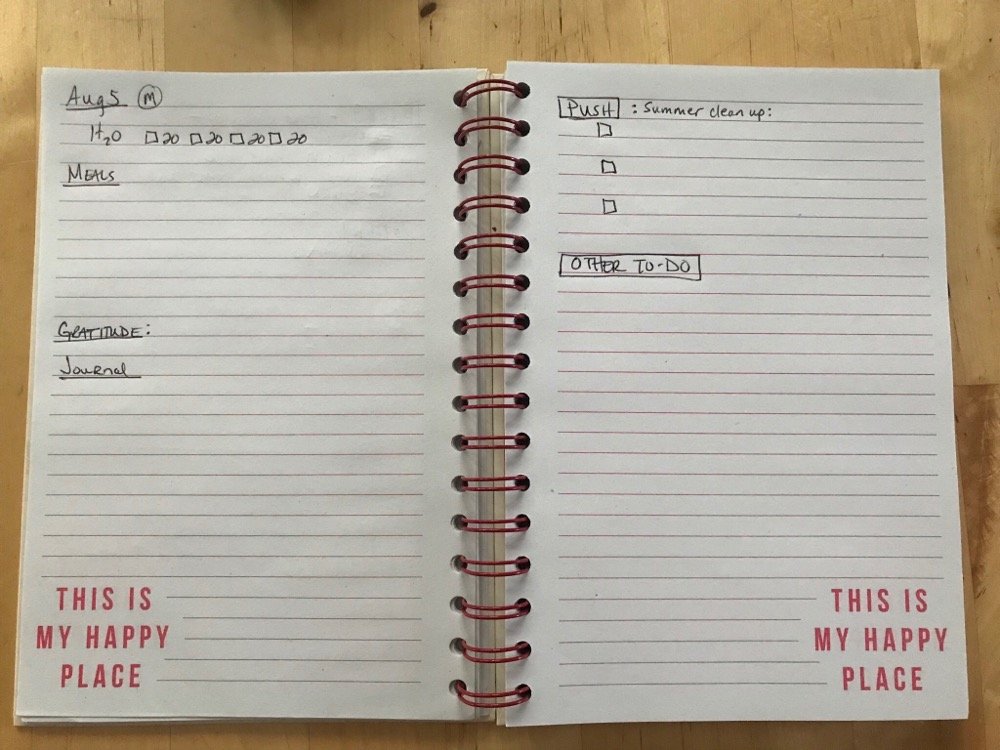 Aug 5 M
H₂O □ 20 □ 20 □ 20 □ 20
MEALS
GRATITUDE:
Journal
THIS IS
MY HAPPY
PLACE
PUSH : Summer clean up:
□
□
□
OTHER TO-DO
THIS IS
MY HAPPY
PLACE